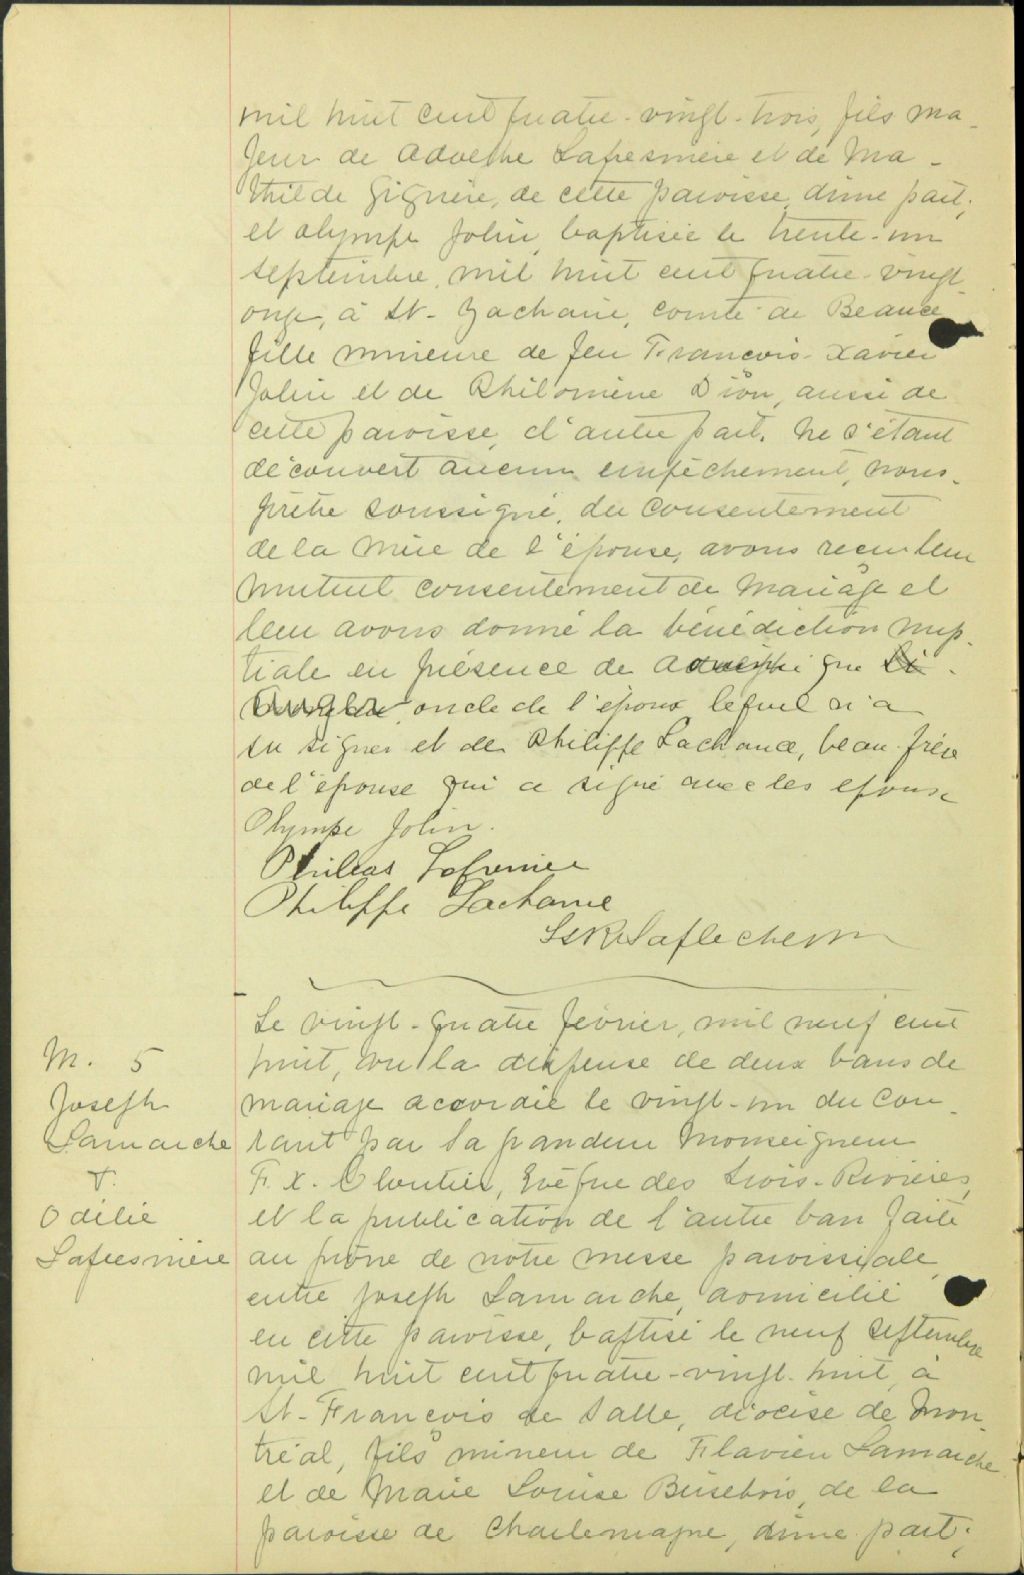 mil huit cent quatre-vingt-trois, fils ma-
jeur de Adolphe Lafresnière et de Ma-
thilde Gignère, de cette paroisse, d'une part;
et Olympe Jolin, baptisée le trente-un
septembre, mil huit cent quatre-vingt-
onze, à St-Zacharie, comté de Beauce
fille mineure de feu Francois-Xavier
Jolin et de Philomène Dion, aussi de
cette paroisse, d'autre part. Ne s'étant
découvert aucun empêchement, nous,
prêtre soussigné, du consentement
de la mère de l'épouse, avons reçu leur
mutuel consentement de mariage et
leur avons donné la bénédiction nup-
tiale en présence de
oncle de l'époux lequel n'a
su signer et de Philippe Lachance, beau-frère
de l'épouse qui a signé avec les epoux
Olympe Jolin.
Philias Lafrenier
Philippe Lachance
Laflèche ptre
Le vingt-quatre février, mil neuf cent
huit, vu la dispense de deux bans de
mariage accordée le vingt-un du cou-
rant par Sa grandeur Monseigneur
F. X. Cloutier, Evêque des Trois-Rivières,
et la publication de l'autre ban faite
au prône de notre messe paroissiale,
entre Joseph Lamarche, domicilié
en cette paroisse, baptisé le neuf septembre
mil huit cent quatre-vingt-huit, à
St-Francois de Salle, diocèse de Mon-
tréal, fils mineur de Flavien Lamarche
et de Marie Louise Busebois, de la
paroisse de Charlemagne, d'une part;
M. 5
Joseph
Lamarche
&
Odilie
Lafresnière